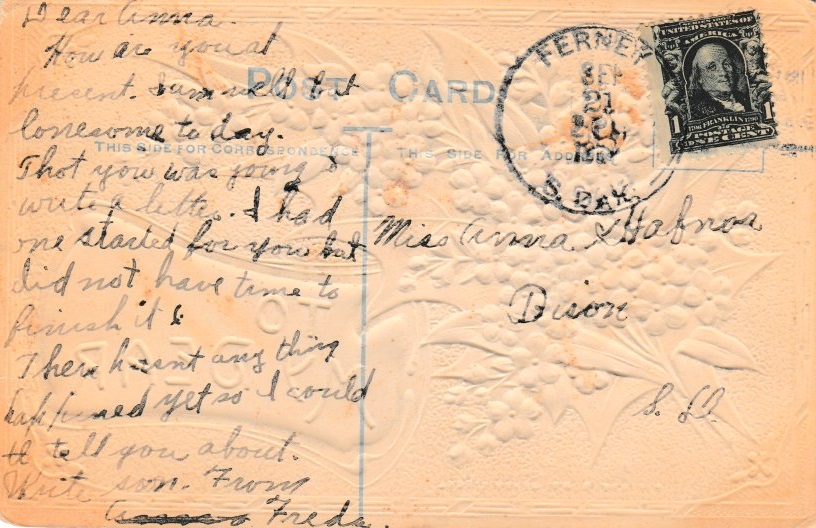 Dear Anna.
How are you at
present. I am well but
lonesome to day.
Thot you was going to
write a letter. I had
one started for you but
did not have time to
finish it &
There hasnt any thing
happened yet so I could
tell you about.
Write soon. From
Freda.
POST CARD
THIS SIDE FOR CORRESPONDENCE
THIS SIDE FOR ADDRESS
FERNEY
SEP
21
S. DAK.
SERIES 1902
UNITED STATES OF
AMERICA
1706 FRANKLIN 1790
1 1
POSTAGE
ONE CENT
Miss Anna
Bison
S. D.
TO
MY DEAR